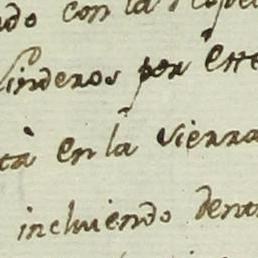 do con la
Linderos por este
tà en la sierra
incluiendo dent